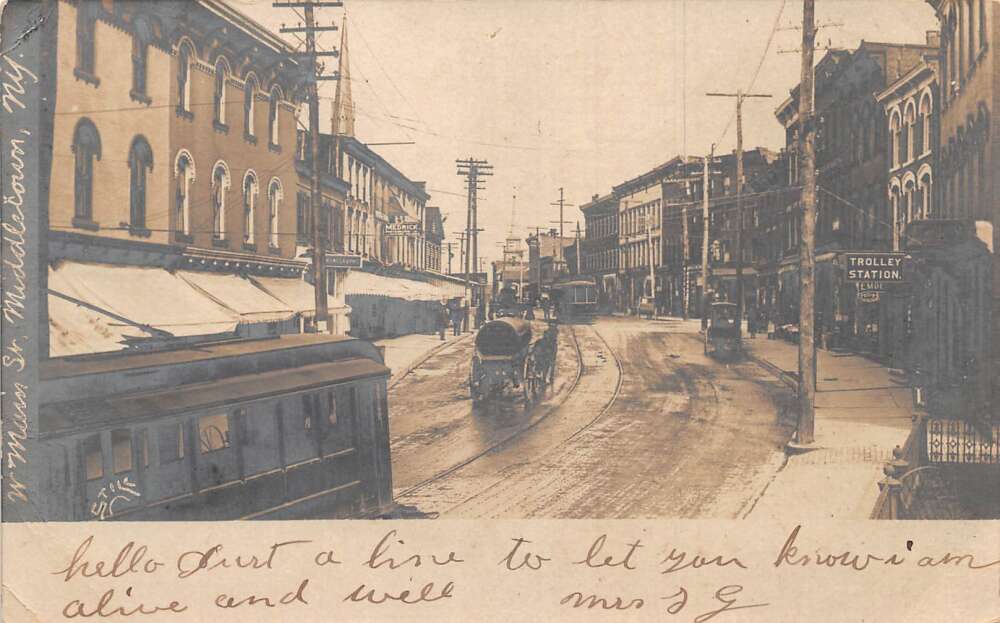 W Main St. Middletown, N.Y.
MEDRICK
TROLLEY
STATION.
hello Just a line to let you know i am
alive and well mrs J G